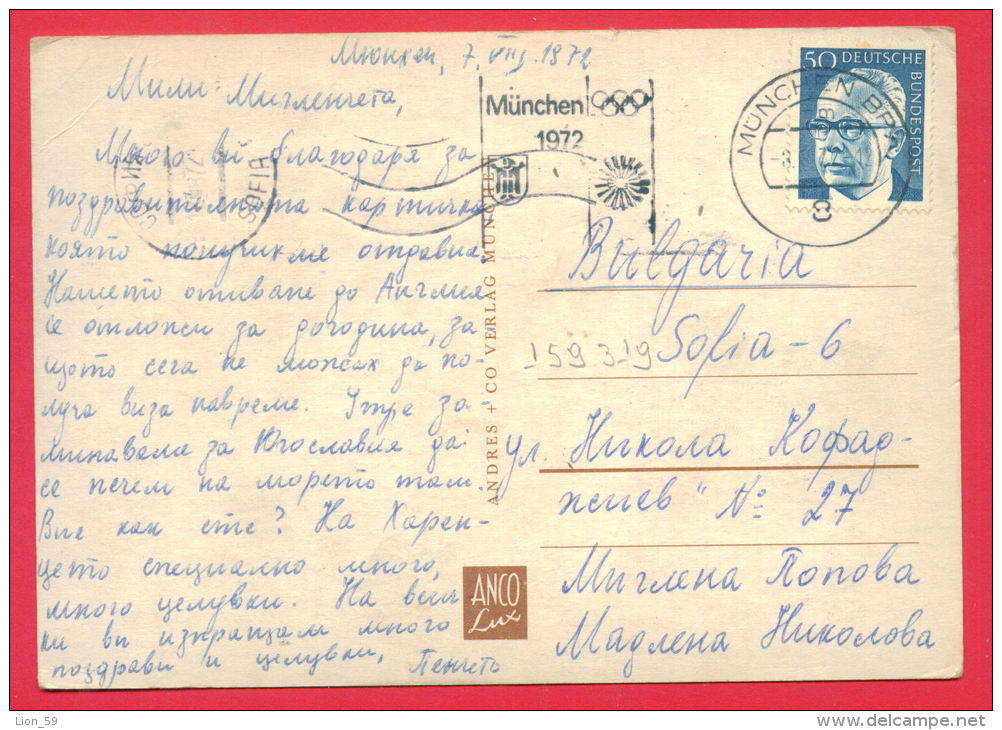 Мюнхен, 7.VIII.1972
Мили Мигленчета,
Много ви благодаря за
поздравителната картичка
която получихме отдавна.
Нашето отиване до Англия
се отложи за догодина, за-
щото сега не можах да по-
луча виза навреме. Утре за-
минаваме за Югославия да
се печем на морето там.
Вие как сте? На Харен-
цето специално много,
много целувки. На всич-
ки ви изпращам много
поздрави и целувки,
Пенчето
München
1972
50 DEUTSCHE
BUNDESPOST
MÜNCHEN BPA
8
SOFIA
ANDRES + CO VERLAG MÜNCHEN
ANCO
Lux
Bulgaria
159 319
Sofia - 6
ул. „Никола Кофад-
жиев" № 27
Миглена Попова
Мадлена Николова
Lion_59